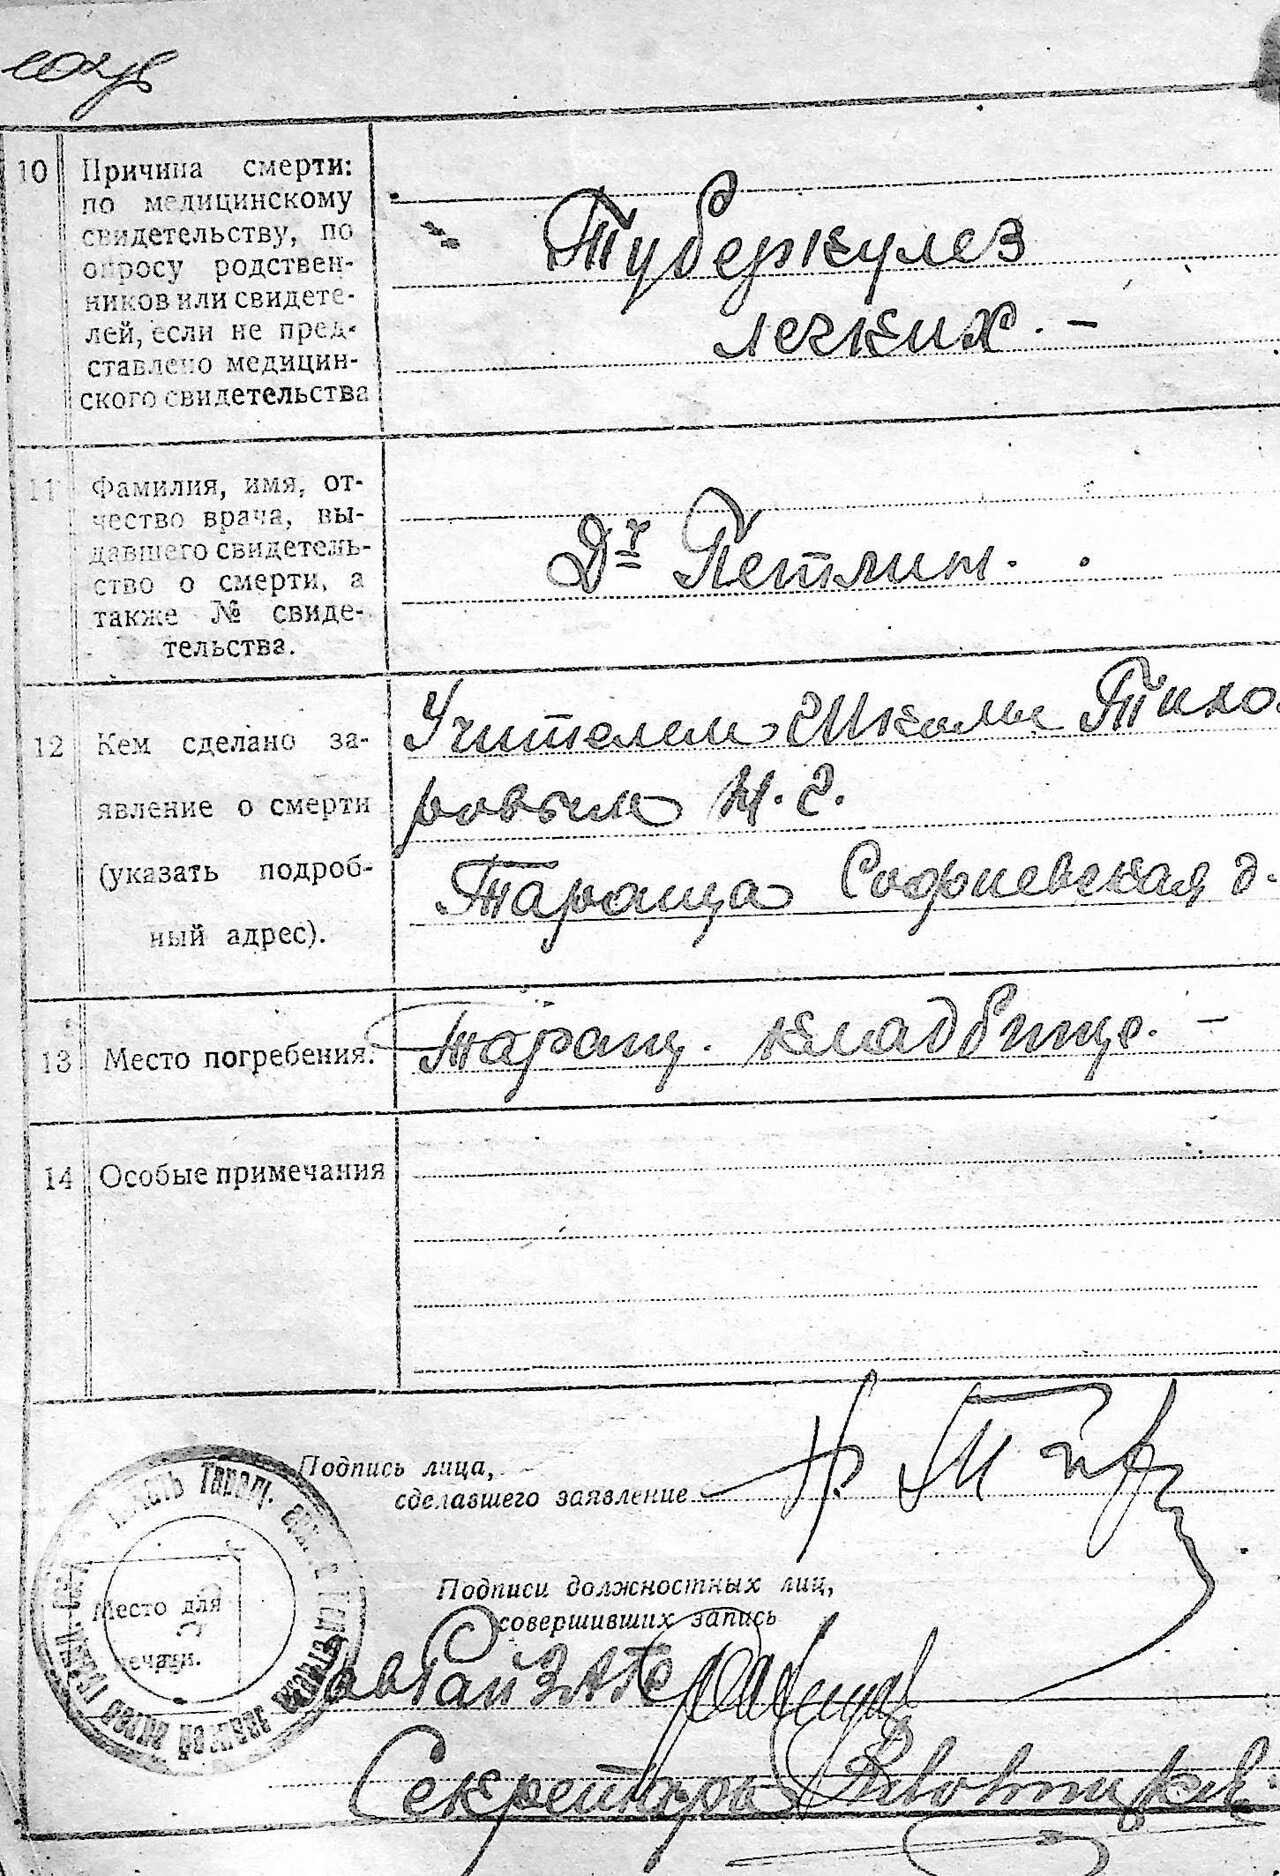 10 Причина смерти:
по медицинскому
свидетельству, по
опросу родствен-
ников или свидете-
лей, если не пред-
ставлено медицин-
ского свидетельства
Туберкулез
легких. -
11 Фамилия, имя, от-
чество врача, вы-
давшего свидетель-
ство о смерти, а
также № свиде-
тельства.
Дr Петлин.
12 Кем сделано за-
явление о смерти
(указать подроб-
ный адрес).
Учителем Школы Тихо-
ровым Н. С.
Тараща Софиевская д.
13 Место погребения.
Таращ. кладбище. -
14 Особые примечания
Подпись лица,
сделавшего заявление
Подписи должностных лиц,
совершивших запись
Место для
печати.
Секретарь